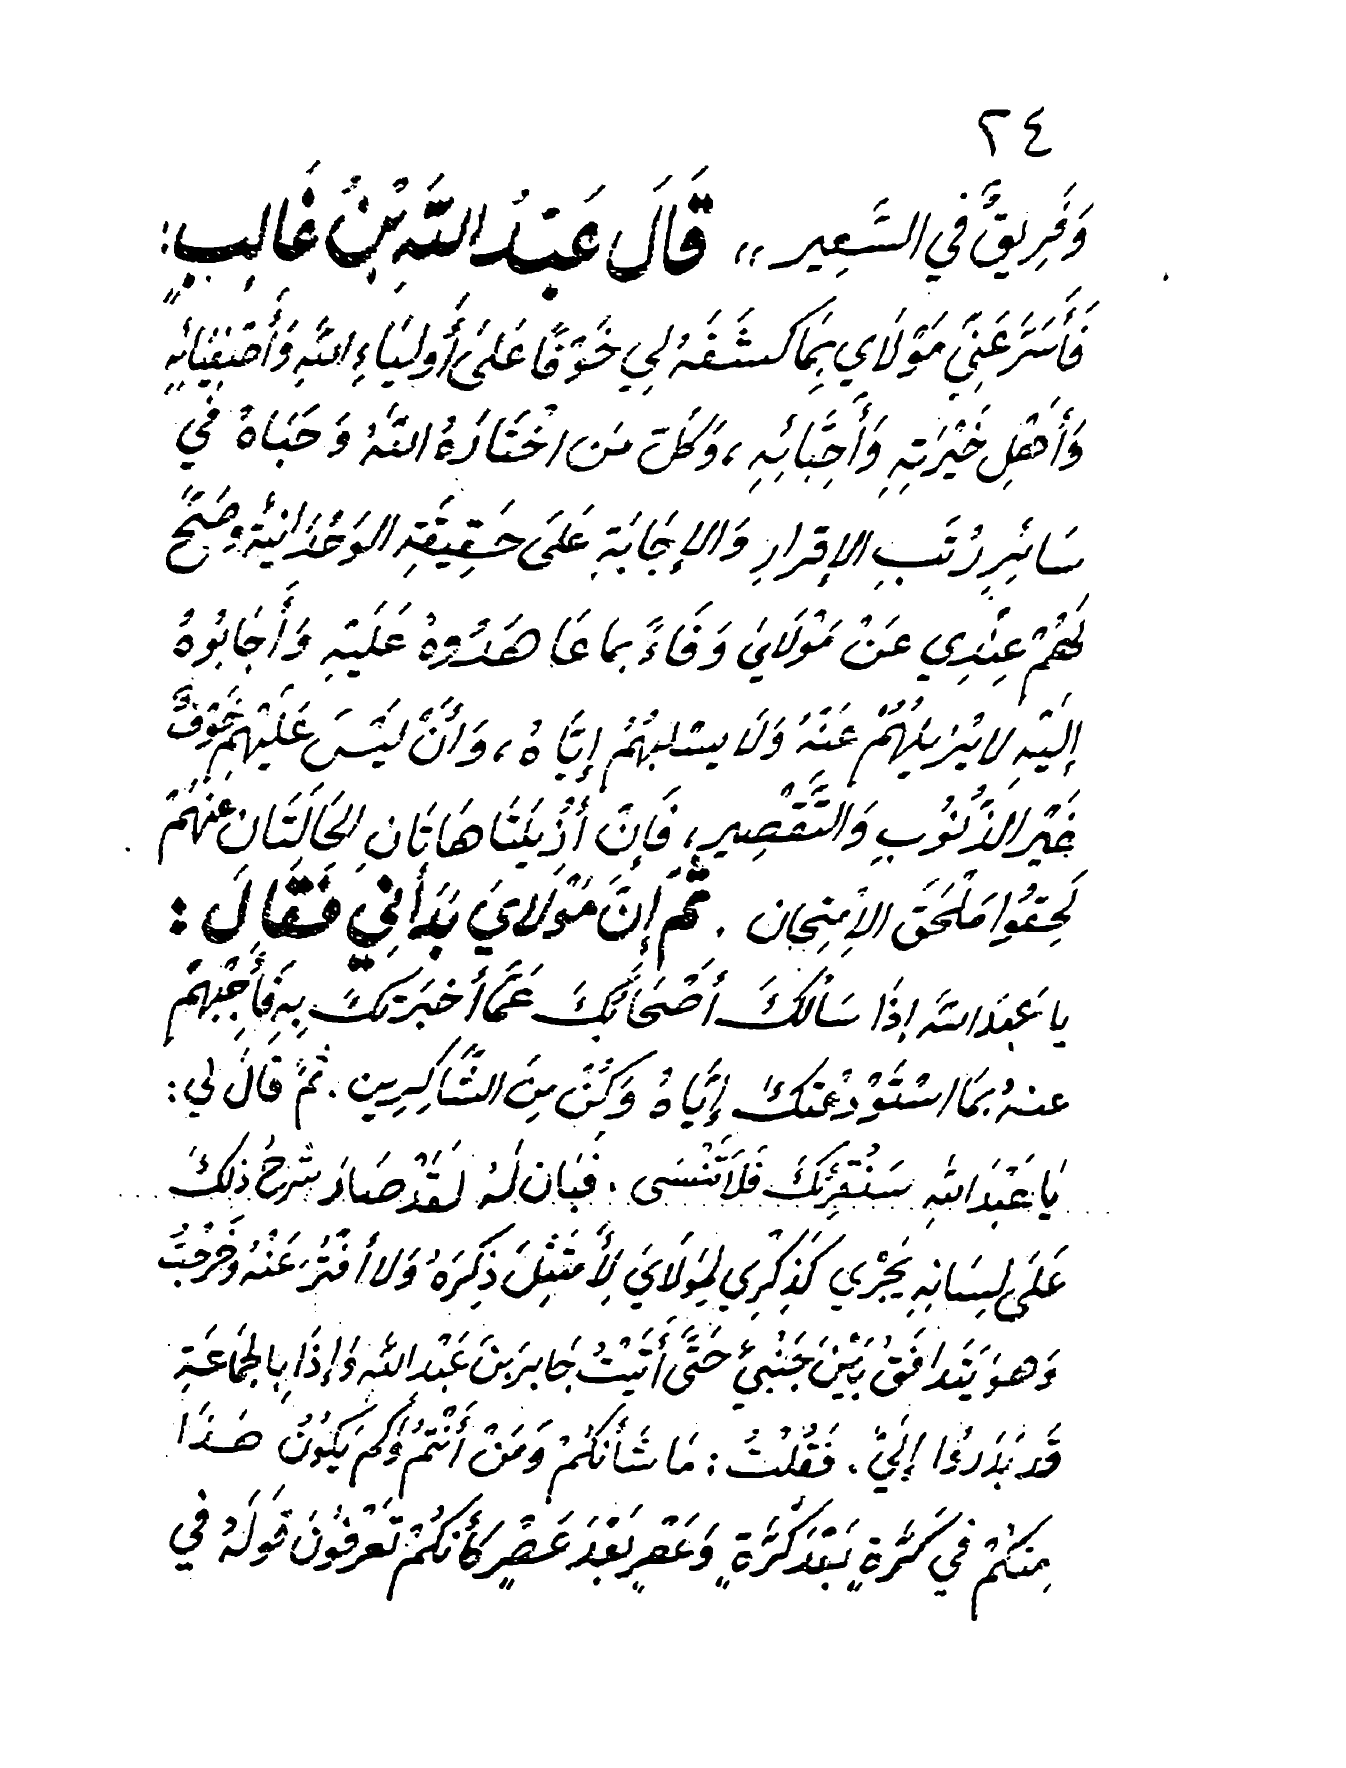 ٢٤
وَفَرِيقٌ في السَّعِير ،، قَالَ عَبْدُ اللهِ بْنُ غَالِبٍ:
فَأَسَرَّ عَنِّي مَوْلَاي بِمَا كَشَفَهُ لِي خَوْفًا عَلَى أَولِيَاءِ اللهِ وَأَصْفِيَائِهِ
وَأَهْلِ خَيْرَتِهِ وَأَحِبَّائِهِ ، وَكُلّ مَن اخْتَارَهُ اللهُ وَحَبَاهُ في
سَائِرِ رُتَبِ الإقرارِ وَالإجَابَةِ عَلَى حَقِيقَةِ الوَحْدَانيَّة وصَحَّ
لَهُمْ عِنْدِي عَنْ مَوْلَايَ وَفَاءً بما عَاهَدُوهُ عَلَيْهِ وَأَجَابُوهُ
إلَيْهِ لا يُزِيلُهُمْ عَنْهُ وَلَا يسْلبهُمْ إيَّاهُ ، وَأنْ لَيْسَ عَلَيْهِم خَوْفٌ
غَيْر الذُّنُوبِ وَالتَّقْصِيرِ ، فَإنْ أُزِيلَتَا هَاتَانِ الحَالَتَان عنهُمْ
لَحِقُوا مَلْحَقَ الإمتِحان . ثُمَّ إنَّ مَوْلايَ بَدَأَنِي فَقَالَ :
يا عَبدَ اللهِ إذَا سَألَكَ أصْحَابُكَ عَمَّا أخبَرتكَ بِهِ فَأَجِبْهُمْ
عنهُ بمَا اسْتَوْدَعْتكَ إيَّاهُ وَكُنْ مِنَ الشَّاكِرِين . ثُمَّ قالَ لي :
يَا عَبْدَ اللهِ سَنُقْرِئكَ فَلَا تَنْسَى . فَبَان لَهُ لَقَدْ صَارَ شَرحُ ذلكَ
عَلَى لِسَانِهِ يَجْرِي كَذِكْرِي لِمَوْلَايَ لِأَمْتَثِلَ ذِكرَهُ وَلا أفْتُرَ عَنْهُ وَخَرَجْتُ
وَهوَ يَتَدَافَقُ بَيْنَ جَنْبَيَّ حَتَّى أَتَيْتُ جَابرَ بنَ عَبْد اللهِ وَإذَا بِالجَمَاعَةِ
قَد بَدَرُوا إلَيَّ . فَقُلْتُ : مَا شَأنكُمْ وَمَنْ أَنْتُمْ وَكَمْ يَكُونُ هَذَا
مِنكُمْ في كَرَّةٍ بَعْدَ كَرَّةٍ وَعَصْرٍ بَعْدَ عَصْرٍ كَأنكُمْ تَعْرِفُونَ قَولَهُ في